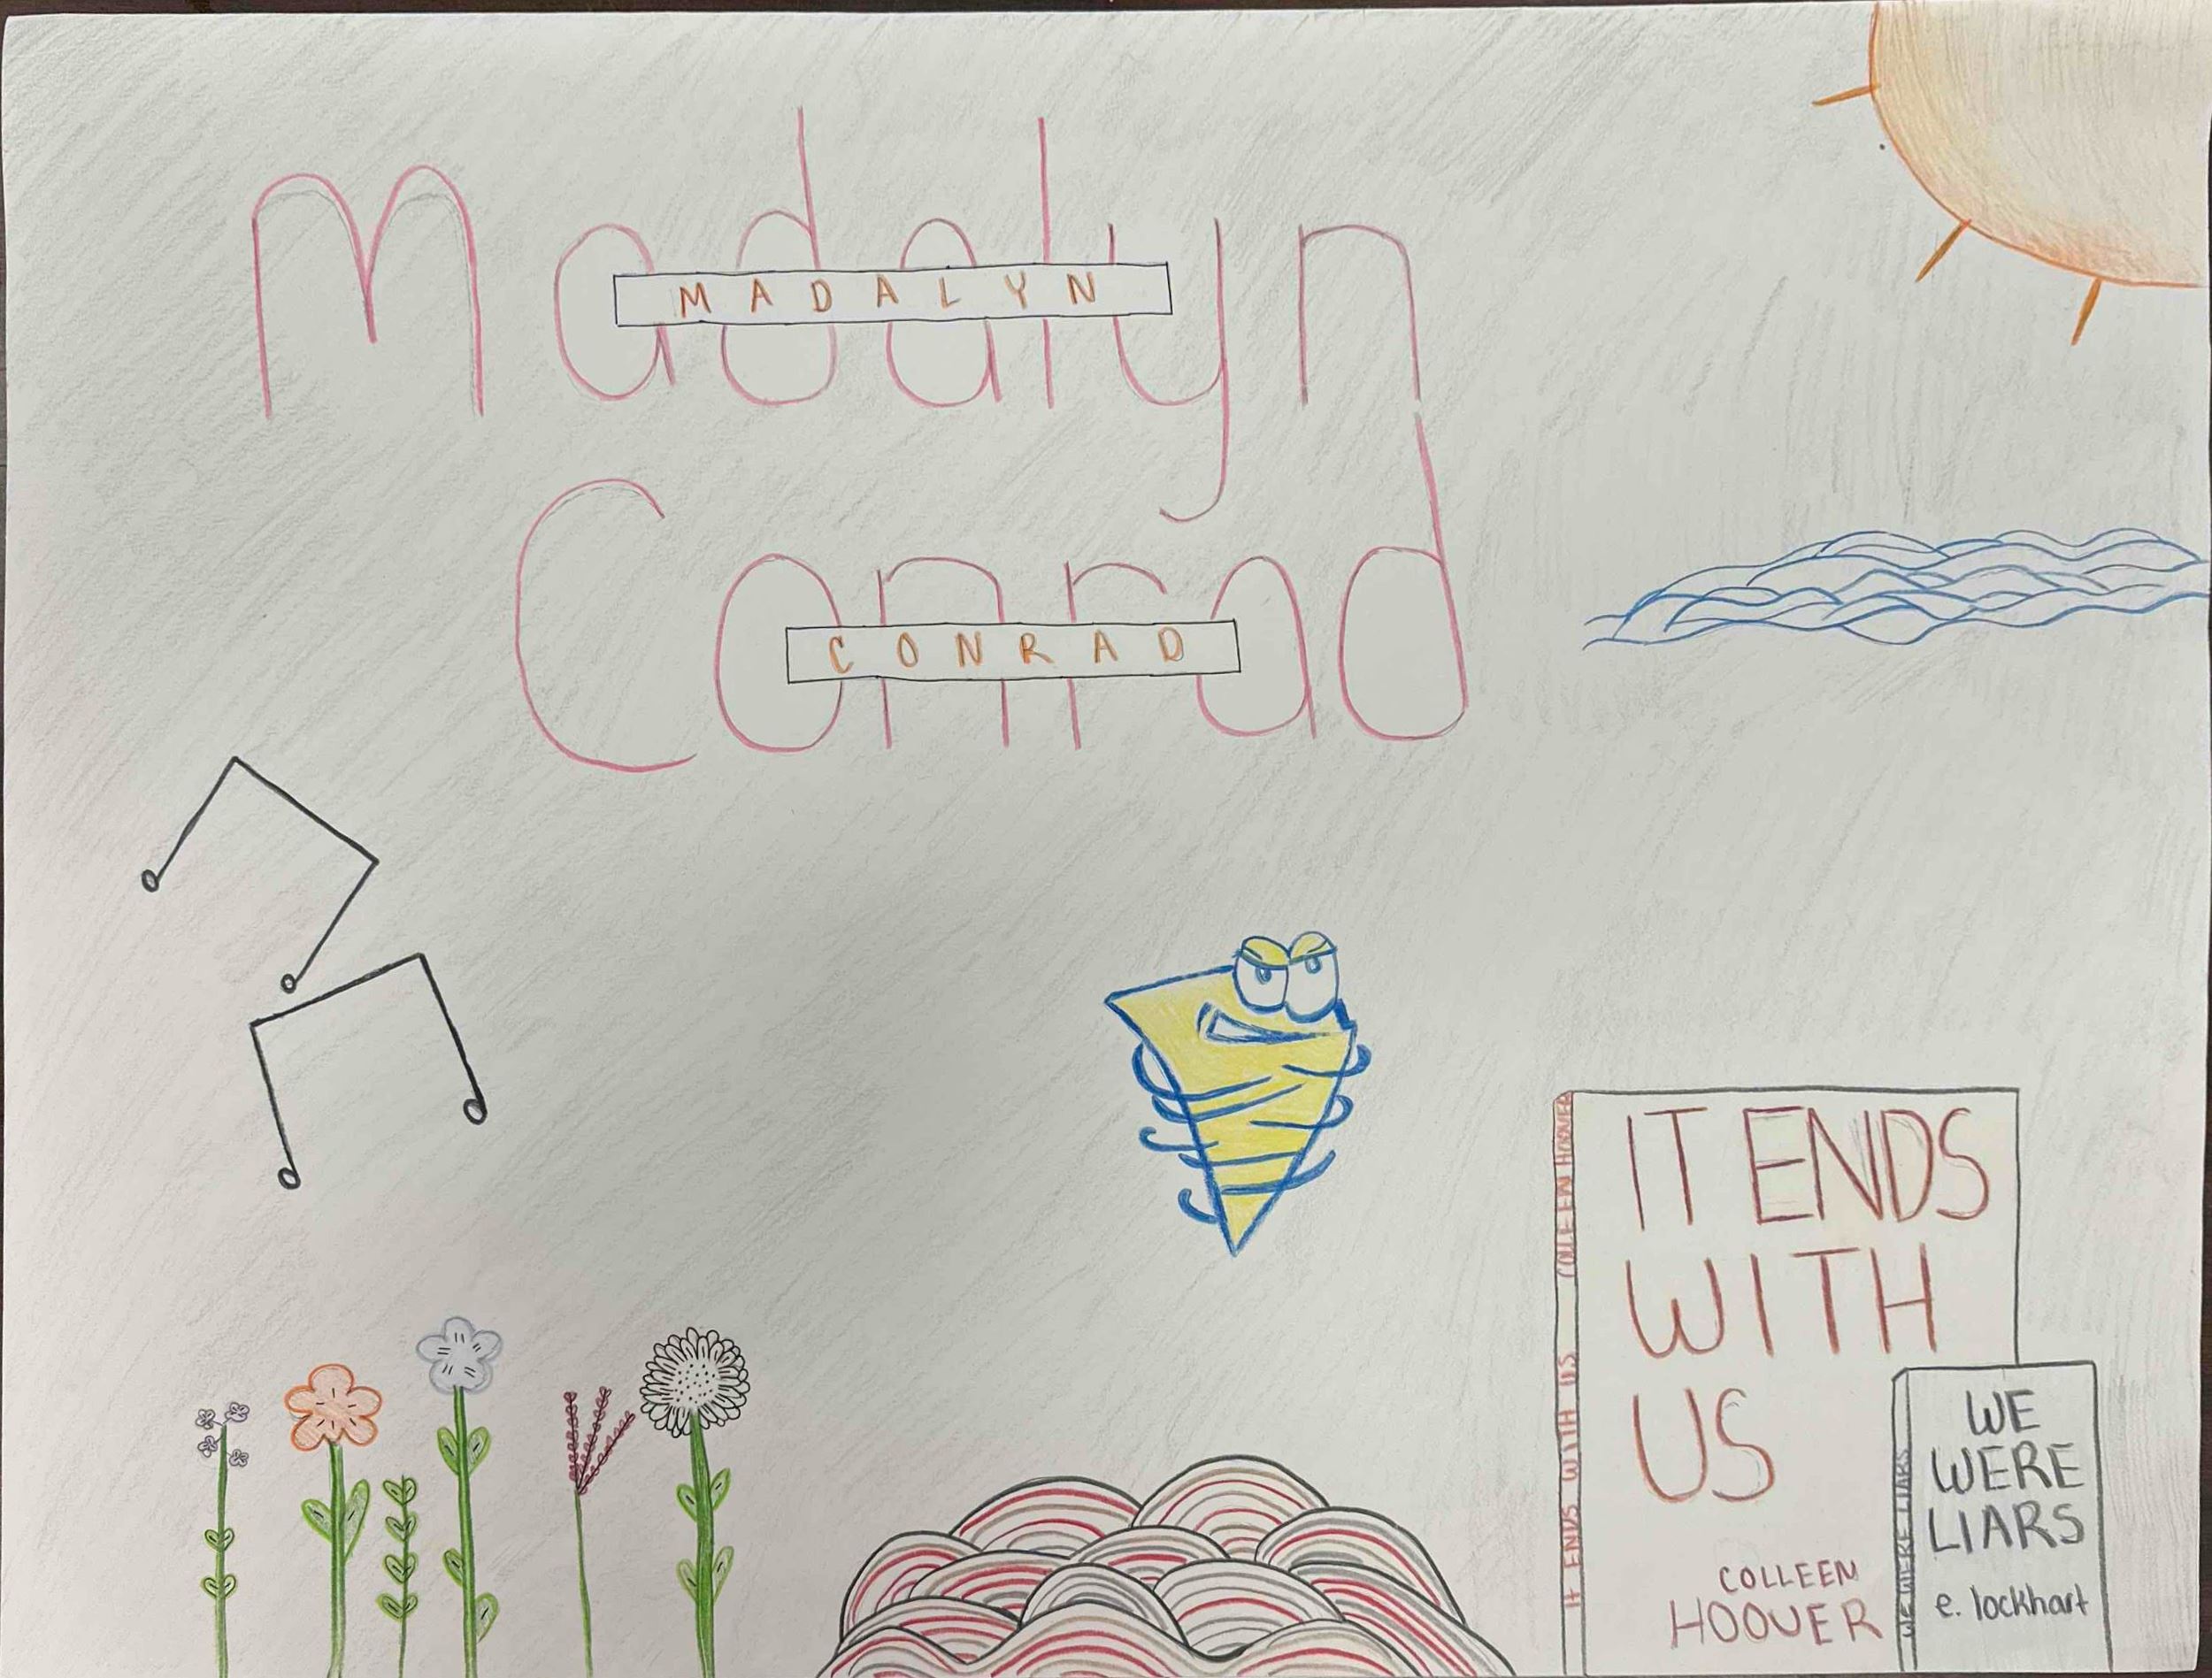 Madalyn
MADALYN
Conrad
CONRAD
IT ENDS WITH US COLLEEN HOOVER
IT ENDS
WITH
US
COLLEEN
HOOVER
WE WERE LIARS
WE
WERE
LIARS
e. lockhart